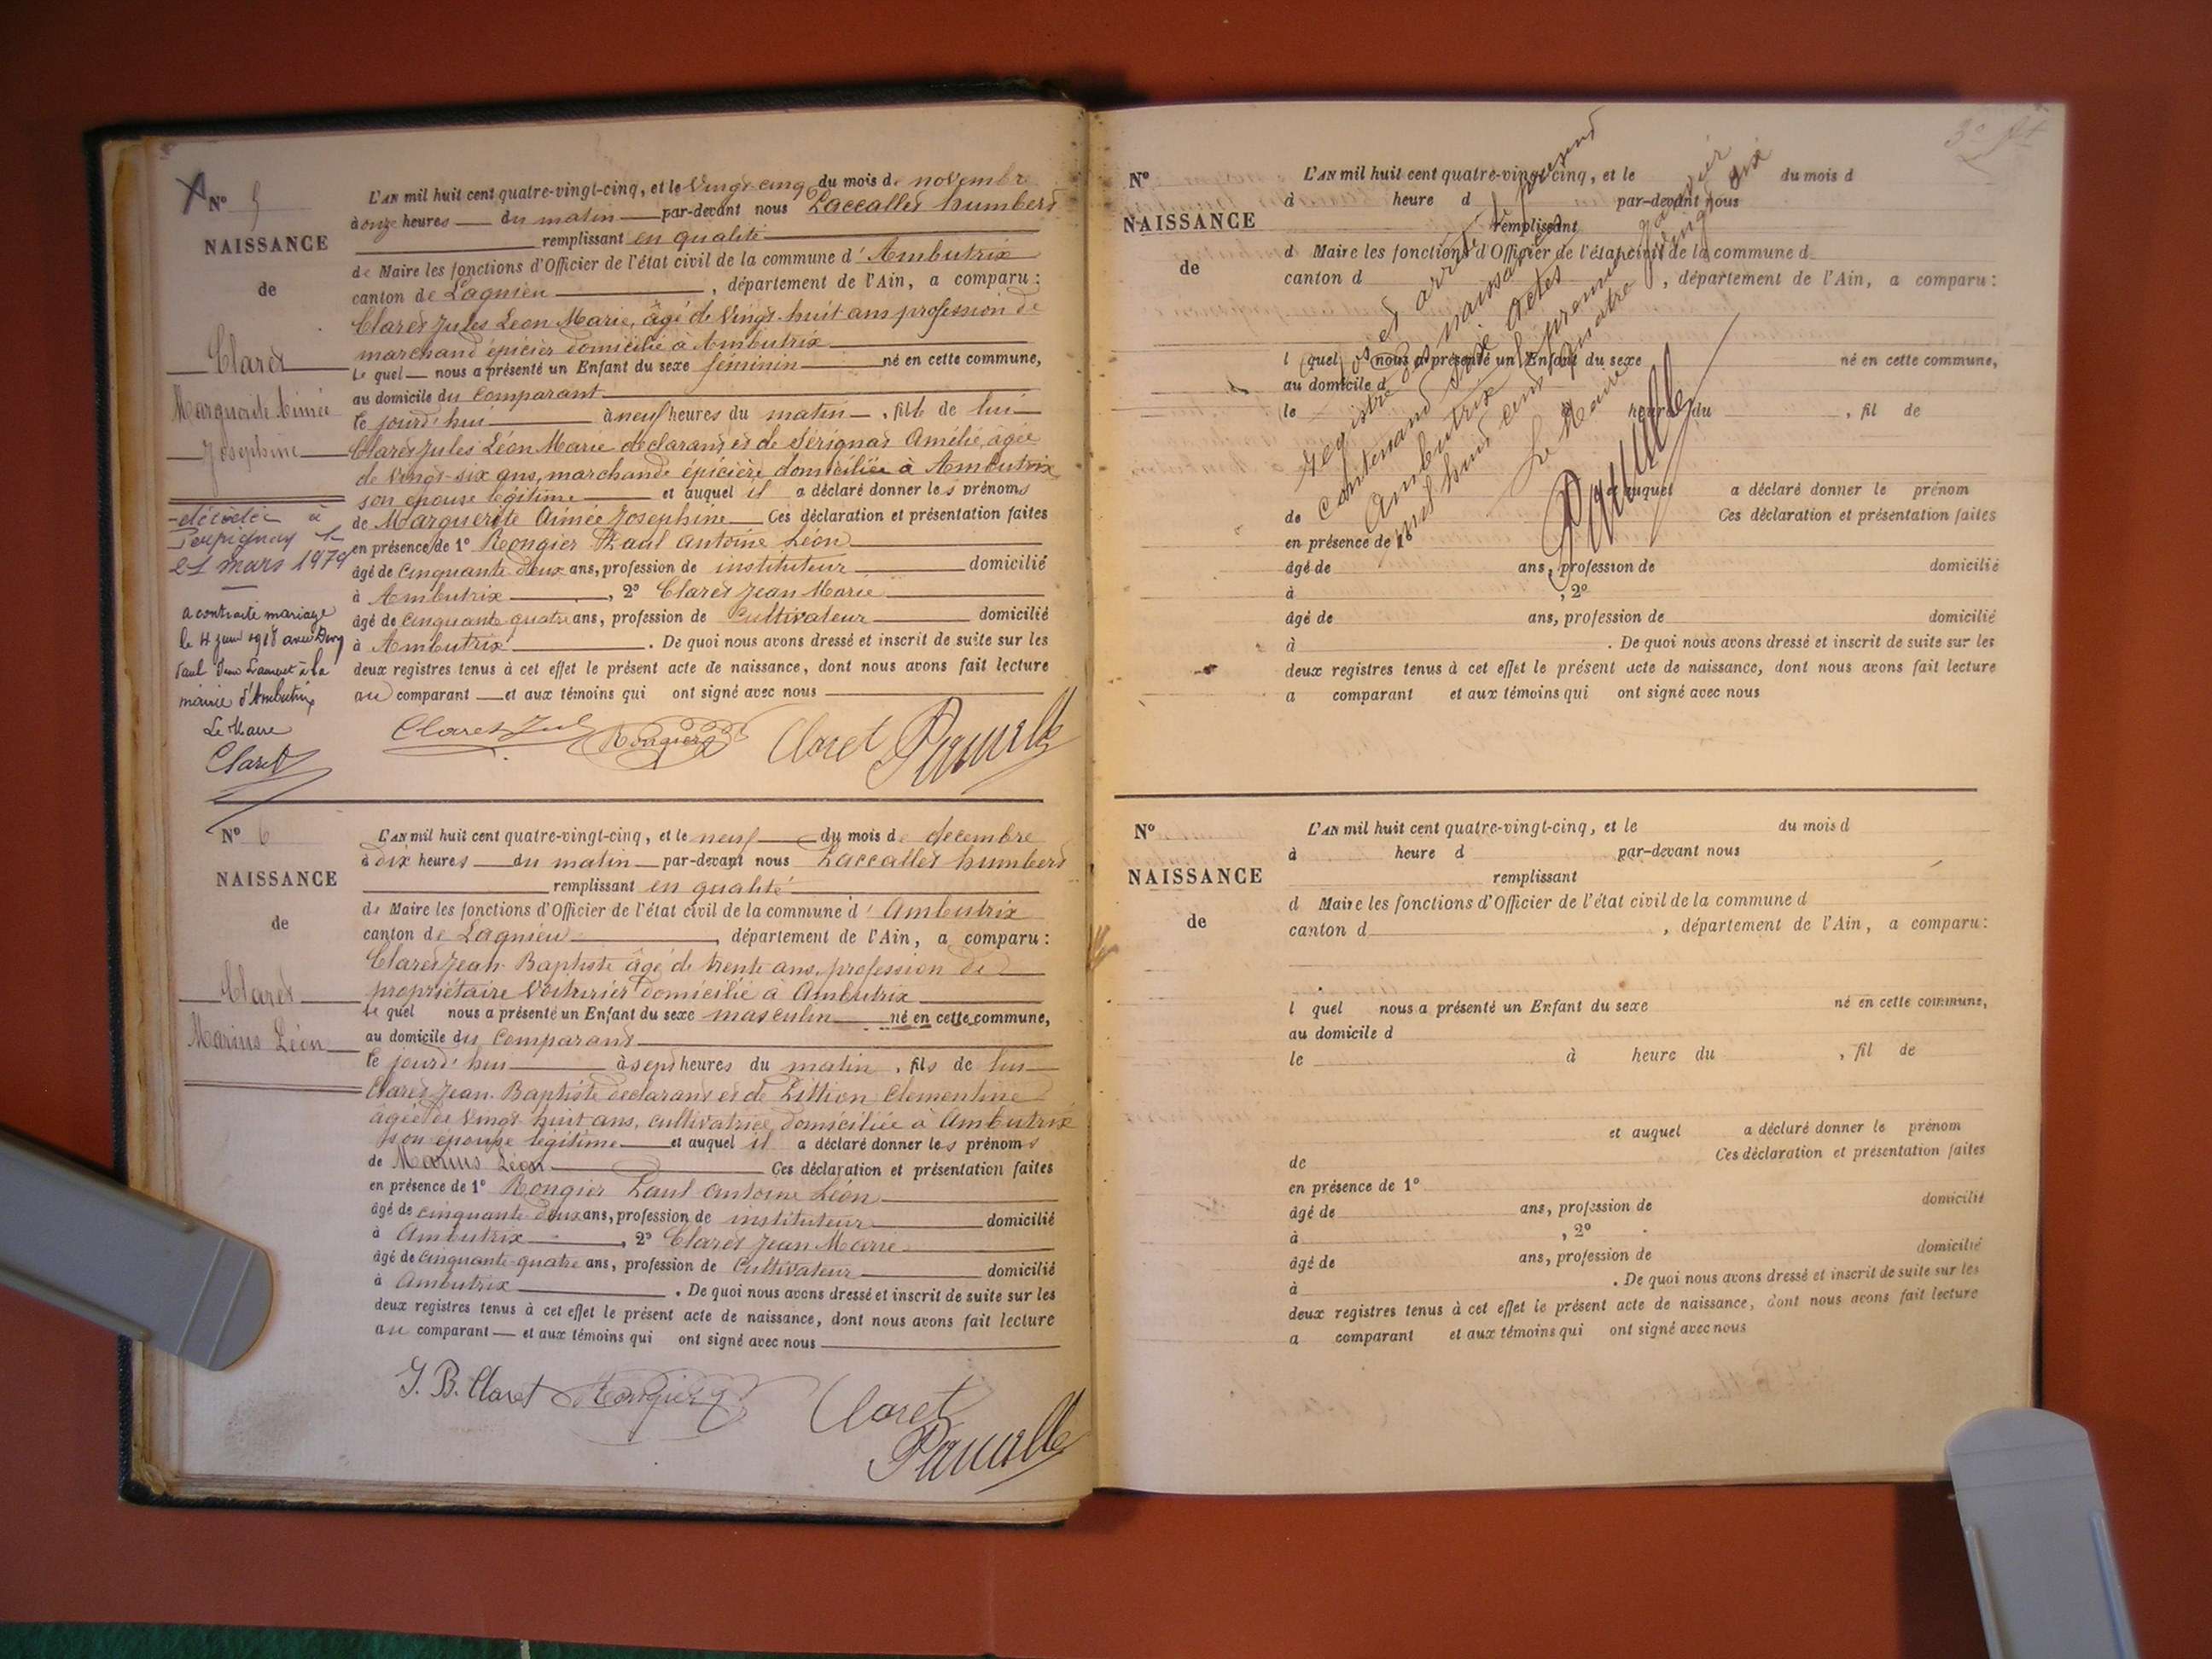 Nº 5
NAISSANCE
de
Claret
Marguerite Aimée
Josephine
décédée à
Perpignan le
21 mars 1979
a contracté mariage
le 4 juin 1918 avec
Paul à la
mairie d'Ambutrix
Le Maire
Claret
L'AN mil huit cent quatre-vingt-cinq, et le Vingt cinq du mois de novembre
à onze heures du matin par-devant nous humbert
remplissant en qualité
de Maire les fonctions d'Officier de l'état civil de la commune d'Ambutrix
canton de Lagnieu, département de l'Ain, a comparu :
Claret Jules Léon Marie, âgé de Vingt-huit ans profession de
marchand épicier domicilié à Ambutrix
Le quel nous a présenté un Enfant du sexe féminin né en cette commune,
au domicile du comparant
le jourd'hui à neuf heures du matin, fille de lui
Claret Jules Léon Marie déclarant et de Sérignat Amélie, agée
de Vingt-six ans, marchande épicière domiciliée à Ambutrix
son épouse légitime et auquel il a déclaré donner les prénoms
de Marguerite Aimée Josephine Ces déclaration et présentation faites
en présence de 1º Rongier Paul Antoine Léon
âgé de Cinquante deux ans, profession de instituteur domicilié
à Ambutrix, 2º Claret Jean Marie
âgé de Cinquante quatre ans, profession de Cultivateur domicilié
à Ambutrix. De quoi nous avons dressé et inscrit de suite sur les
deux registres tenus à cet effet le présent acte de naissance, dont nous avons fait lecture
au comparant et aux témoins qui ont signé avec nous
Claret Jul Rongier Claret
Nº 6
NAISSANCE
de
Claret
Marius Léon
L'AN mil huit cent quatre-vingt-cinq, et le neuf du mois de décembre
à dix heures du matin par-devant nous humbert
remplissant en qualité
de Maire les fonctions d'Officier de l'état civil de la commune d'Ambutrix
canton de Lagnieu, département de l'Ain, a comparu :
Claret Jean-Baptiste âgé de trente ans, profession de
propriétaire Voiturier domicilié à Ambutrix
Le quel nous a présenté un Enfant du sexe masculin né en cette commune,
au domicile du Comparant
le jourd'hui à sept heures du matin, fils de lui
Claret Jean-Baptiste déclarant et de Clementine
agée de Vingt-huit ans, cultivatrice domiciliée à Ambutrix
son épouse légitime et auquel il a déclaré donner les prénoms
de Marius Léon Ces déclaration et présentation faites
en présence de 1º Rongier Paul Antoine Léon
âgé de cinquante deux ans, profession de instituteur domicilié
à Ambutrix, 2º Claret Jean Marie
âgé de Cinquante-quatre ans, profession de Cultivateur domicilié
à Ambutrix. De quoi nous avons dressé et inscrit de suite sur les
deux registres tenus à cet effet le présent acte de naissance, dont nous avons fait lecture
au comparant et aux témoins qui ont signé avec nous
J. B. Claret Rongier Claret
Nº
NAISSANCE
de
L'AN mil huit cent quatre-vingt-cinq, et le du mois d
à heure d par-devant nous
remplissant
d Maire les fonctions d'Officier de l'état civil de la commune d
canton d, département de l'Ain, a comparu :
l quel nous a présenté un Enfant du sexe né en cette commune,
au domicile d
le à heure du, fil de
et auquel a déclaré donner le prénom
de Ces déclaration et présentation faites
en présence de 1º
âgé de ans, profession de domicilié
à, 2º
âgé de ans, profession de domicilié
à. De quoi nous avons dressé et inscrit de suite sur les
deux registres tenus à cet effet le présent acte de naissance, dont nous avons fait lecture
a comparant et aux témoins qui ont signé avec nous
Clos et arrêté le présent
registre des naissances
contenant six actes
Ambutrix le premier Janvier
mil huit cent quatre vingt six
Le Maire
Nº
NAISSANCE
de
L'AN mil huit cent quatre-vingt-cinq, et le du mois d
à heure d par-devant nous
remplissant
d Maire les fonctions d'Officier de l'état civil de la commune d
canton d, département de l'Ain, a comparu :
l quel nous a présenté un Enfant du sexe né en cette commune,
au domicile d
le à heure du, fil de
et auquel a déclaré donner le prénom
de Ces déclaration et présentation faites
en présence de 1º
âgé de ans, profession de domicilié
à, 2º
âgé de ans, profession de domicilié
à. De quoi nous avons dressé et inscrit de suite sur les
deux registres tenus à cet effet le présent acte de naissance, dont nous avons fait lecture
a comparant et aux témoins qui ont signé avec nous